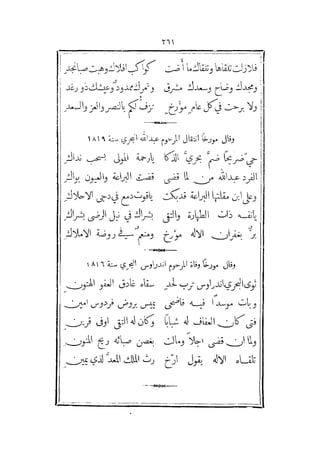 ٢٦١
فلا زلت تلقاها وتلقاك ما أضت كواكب افلاك وهبت صبا نجد
ومجدك وضاح وسعدك مشرق وعمرك ممدود وعيشك ذو رغد
ولا برحت في كل عام مؤرخ تزف لكم بالنصر والعز والسعد
وقال مورخا انتقال المرحوم عبدالله البحري سنة ١٨١٩
حيّ ضريحًا ضمَّ بحريَّ الذكا يا رحمة المولى بسحب نداك
الفرد عبدالله من لما قضى قضت البراعة والعيون بواك
وعلى ابن مقلتها البراعة قد بكت ياقوت دمع في دجى الاحلاك
يا نفسه ذات الطهارة والتقى بشراك في نيل الرضى بشراك
برٌّ بغفران الاله مؤرخ ومنعم في روضة الاملاك
وقال مورخا وفاة المرحوم اندراوس البحري سنة ١٨١٦
ثوى البحري اندراوس ترب لحد سقاه غادق العفو الهتون
وبات موسدًا فيه فاضحى يميس بروض فردوس امين
فتى كان العفاف له شبابًا وكان له التقى اوفى قرين
ولما ان قضى اجلاً ومالت بغصن صبائه ريح المنون
تلقاه الاله يقول ارّخ رث الملك المعدّ لذي يمين